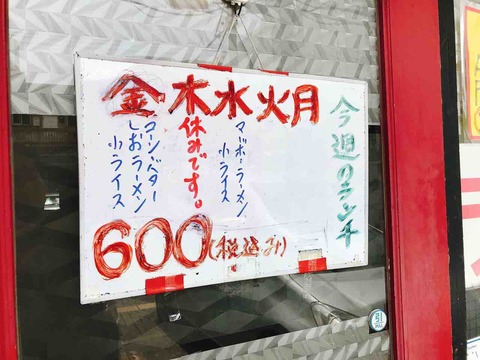 今週のランチ
月
火
水
木
金
マーボーラーメン
小ライス
休みです。
コーンバター
しおラーメン
小ライス
600(税込み)
引